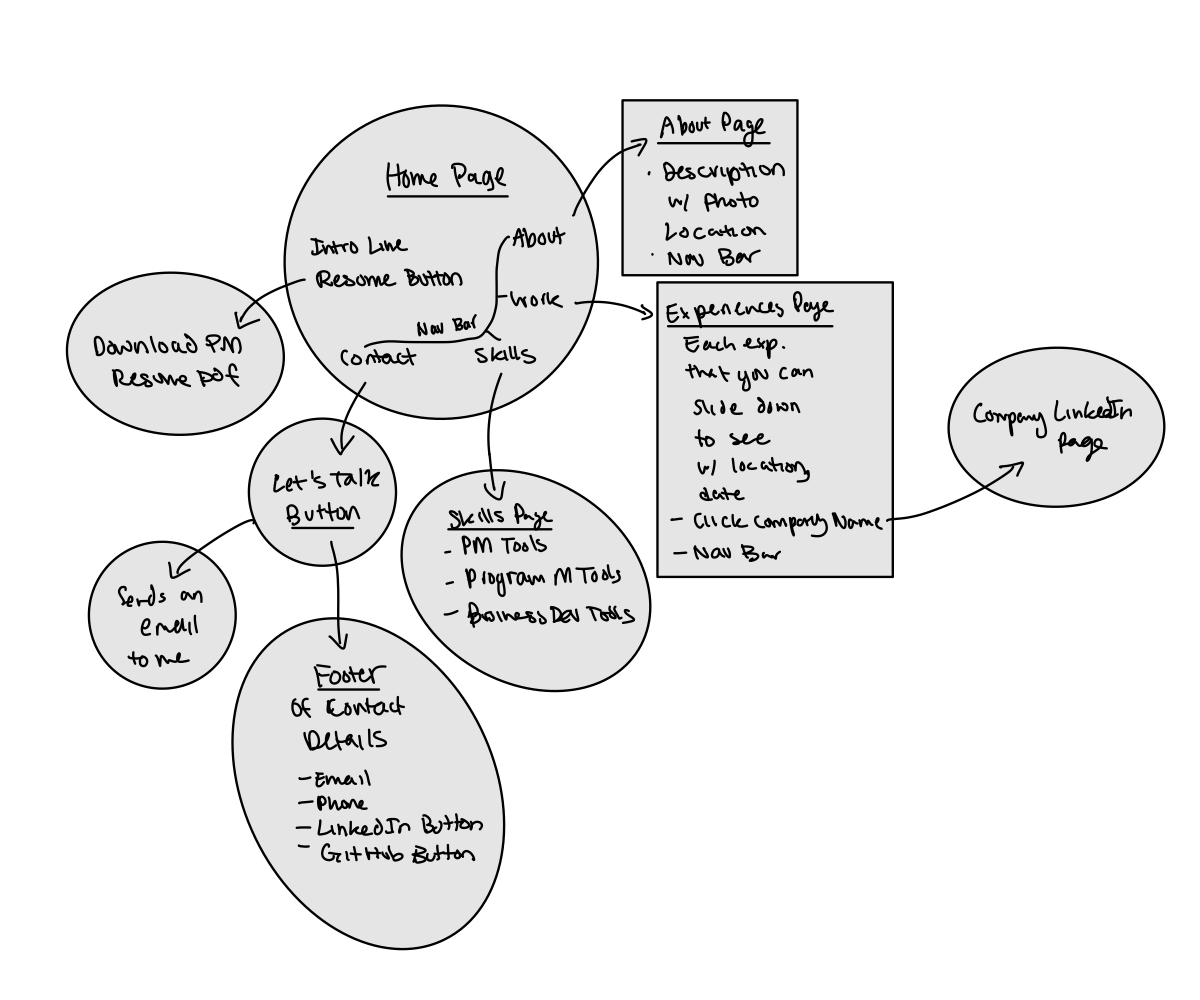 Home Page
Intro Line
Resume Button
About
Work
Nav Bar
Contact
Skills
About Page
· Description
w/ Photo
Location
· Nav Bar
Download PM
Resume pdf
Experiences Page
Each exp.
that you can
slide down
to see
w/ location,
date
- Click Company Name
- Nav Bar
Company LinkedIn
page
Let's Talk
Button
Skills Page
- PM Tools
- Program M Tools
- Business Dev Tools
Sends an
email
to me
Footer
Of Contact
Details
- Email
- Phone
- LinkedIn Button
- GitHub Button